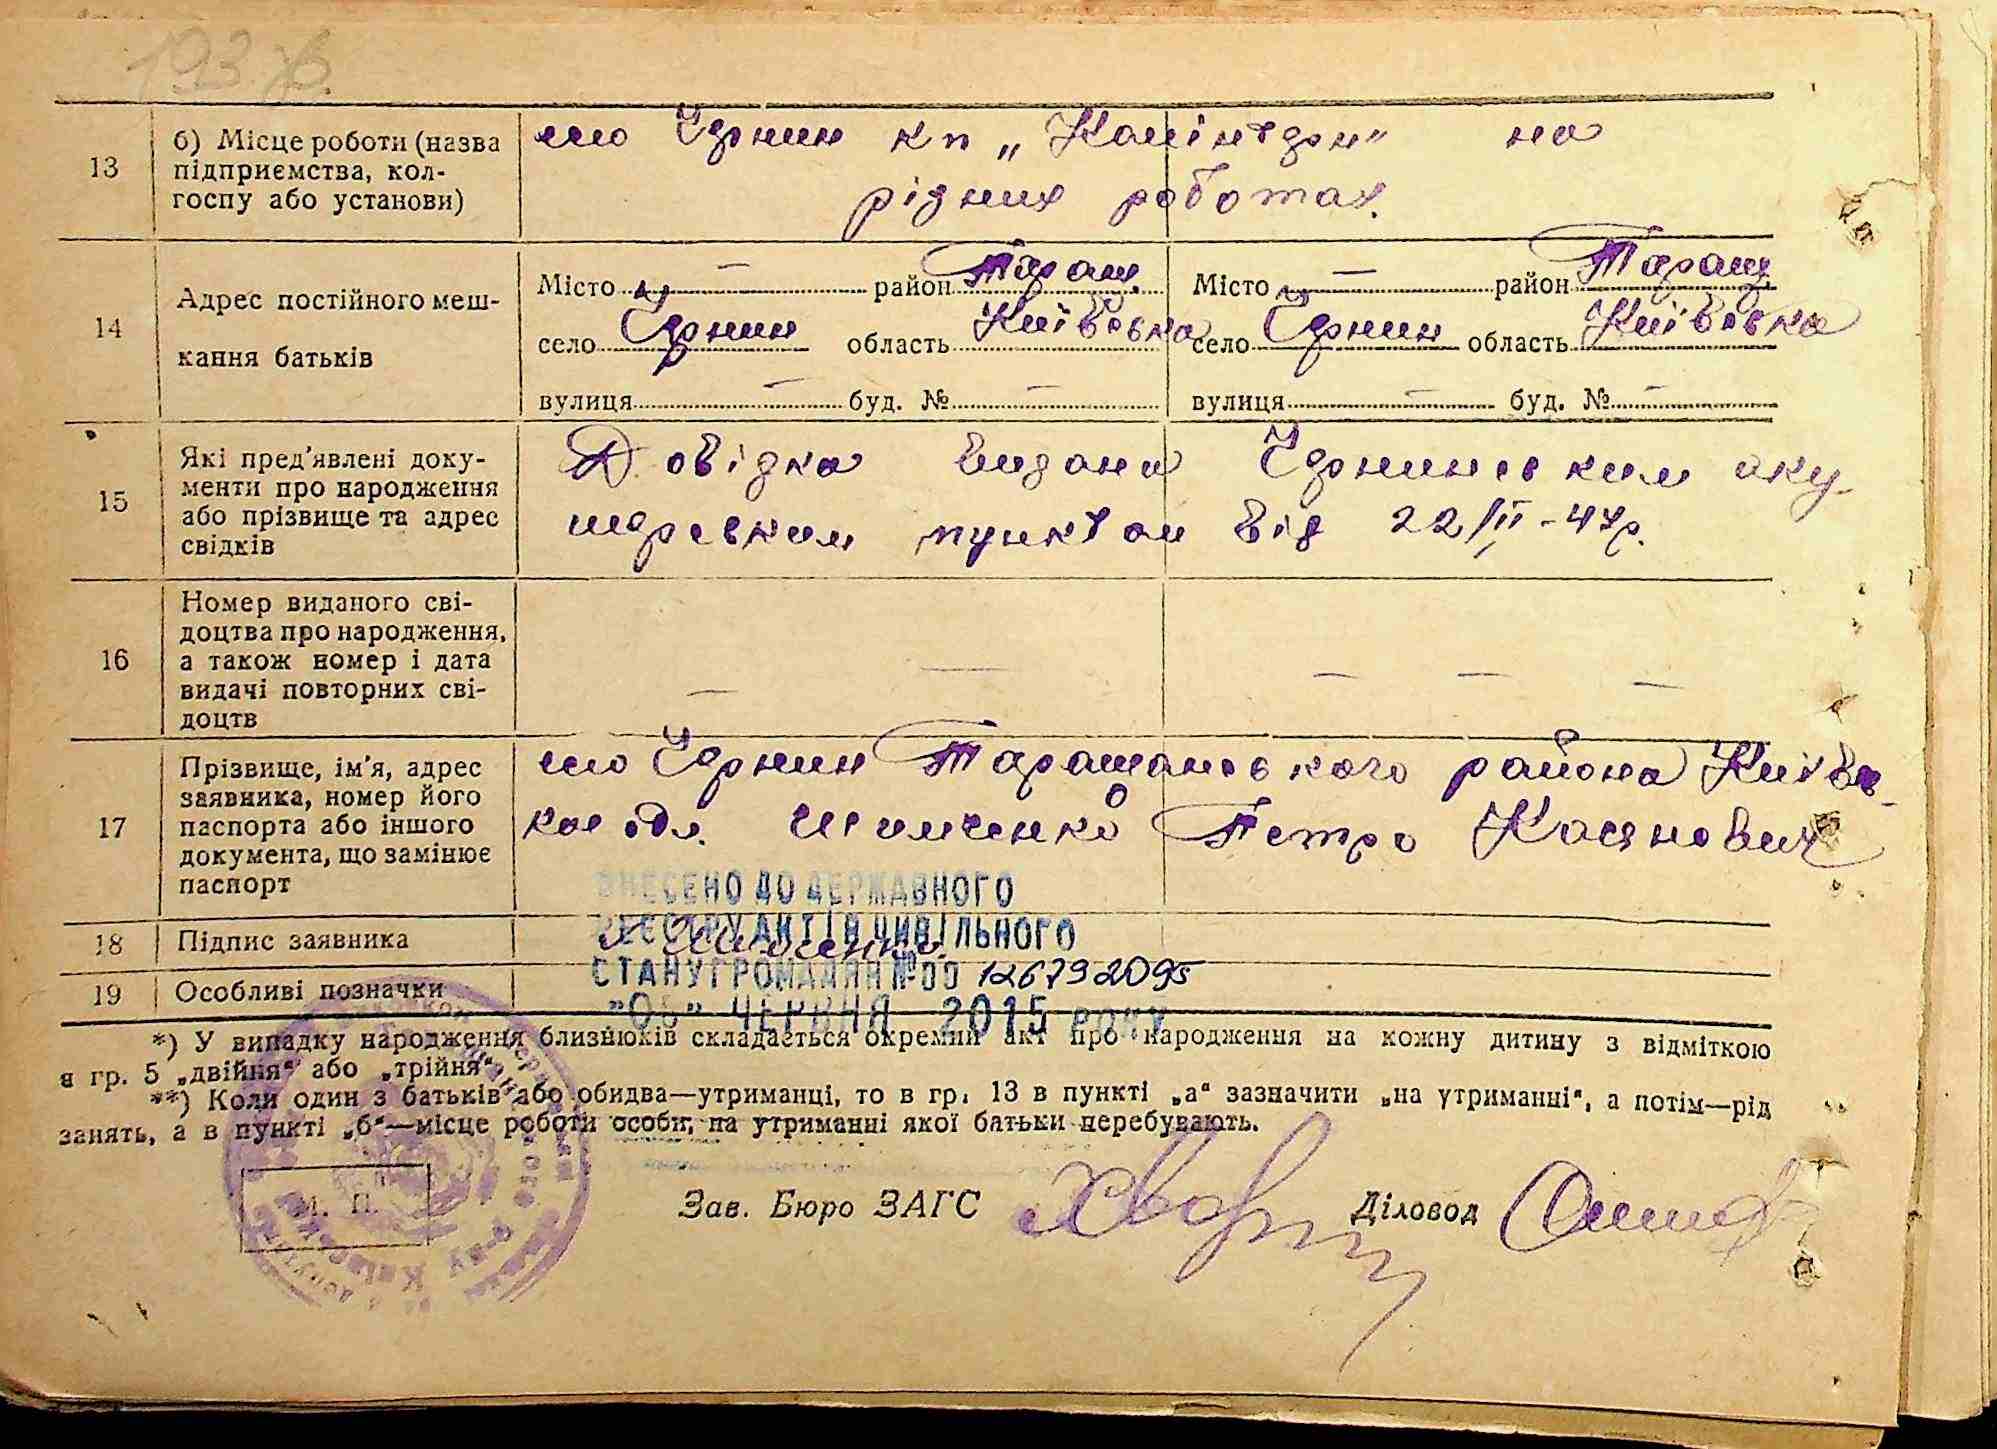 193 зв.
13
б) Місце роботи (назва
підприємства, кол-
госпу або установи)
село Чернин кп „Комінтерн" на
різних роботах.
14
Адрес постійного меш-
кання батьків
Місто — район Таращ.
село Чернин область Київська
вулиця — буд. № —
Місто — район Таращ.
село Чернин область Київська
вулиця — буд. № —
15
Які пред'явлені доку-
менти про народження
або прізвище та адрес
свідків
Довідка видана Чернинським аку-
шерським пунктом від 22/II-47р.
16
Номер виданого сві-
доцтва про народження,
а також номер і дата
видачі повторних сві-
доцтв
— — — — —
17
Прізвище, ім'я, адрес
заявника, номер його
паспорта або іншого
документа, що замінює
паспорт
село Чернин Таращанського района Київсь-
кої обл. Шимченко Петро Касянович
18
Підпис заявника
19
Особливі позначки
ВНЕСЕНО ДО ДЕРЖАВНОГО
РЕЄСТРУ АКТІВ ЦИВІЛЬНОГО
СТАНУ ГРОМАДЯН №00 126792095
"06" ЧЕРВНЯ 2015 РОКУ
*) У випадку народження близнюків складається окремий акт про народження на кожну дитину з відміткою
в гр. 5 „двійня" або „трійня".
**) Коли один з батьків або обидва—утриманці, то в гр. 13 в пункті „а" зазначити „на утриманні", а потім—рід
занять, а в пункті „б"—місце роботи особи, на утриманні якої батьки перебувають.
М. П.
Зав. Бюро ЗАГС
Діловод